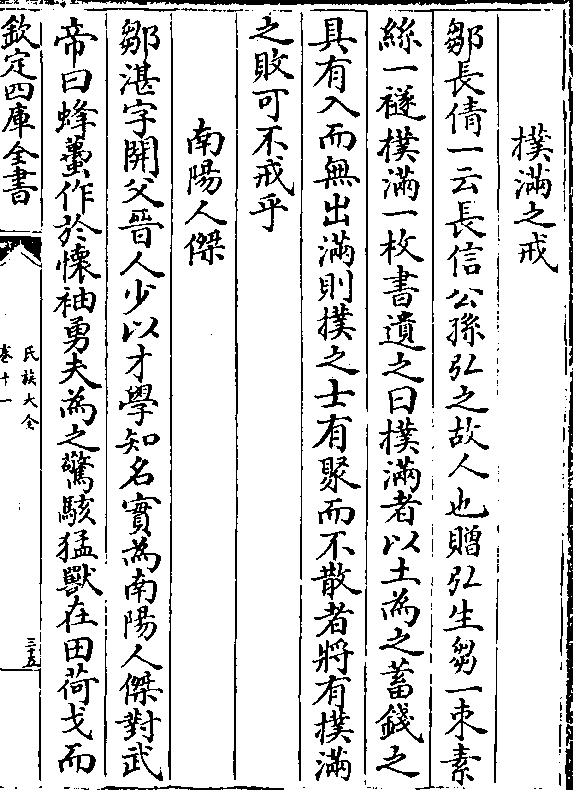 撲滿之戒
鄒長倩一云長信公孫弘之故人也贈弘生芻一束素
絲一襚撲滿一枚書遺之曰撲滿者以土為之蓄錢之
具有入而無出滿則撲之士有聚而不散者將有撲滿
之敗可不戒乎
南陽人傑
鄒湛字開父晉人少以才學知名實為南陽人傑對武
帝曰蜂蠆作於懷袖勇夫為之驚駭猛獸在田荷戈而
欽定四庫全書
氏族大全
卷十一
三五